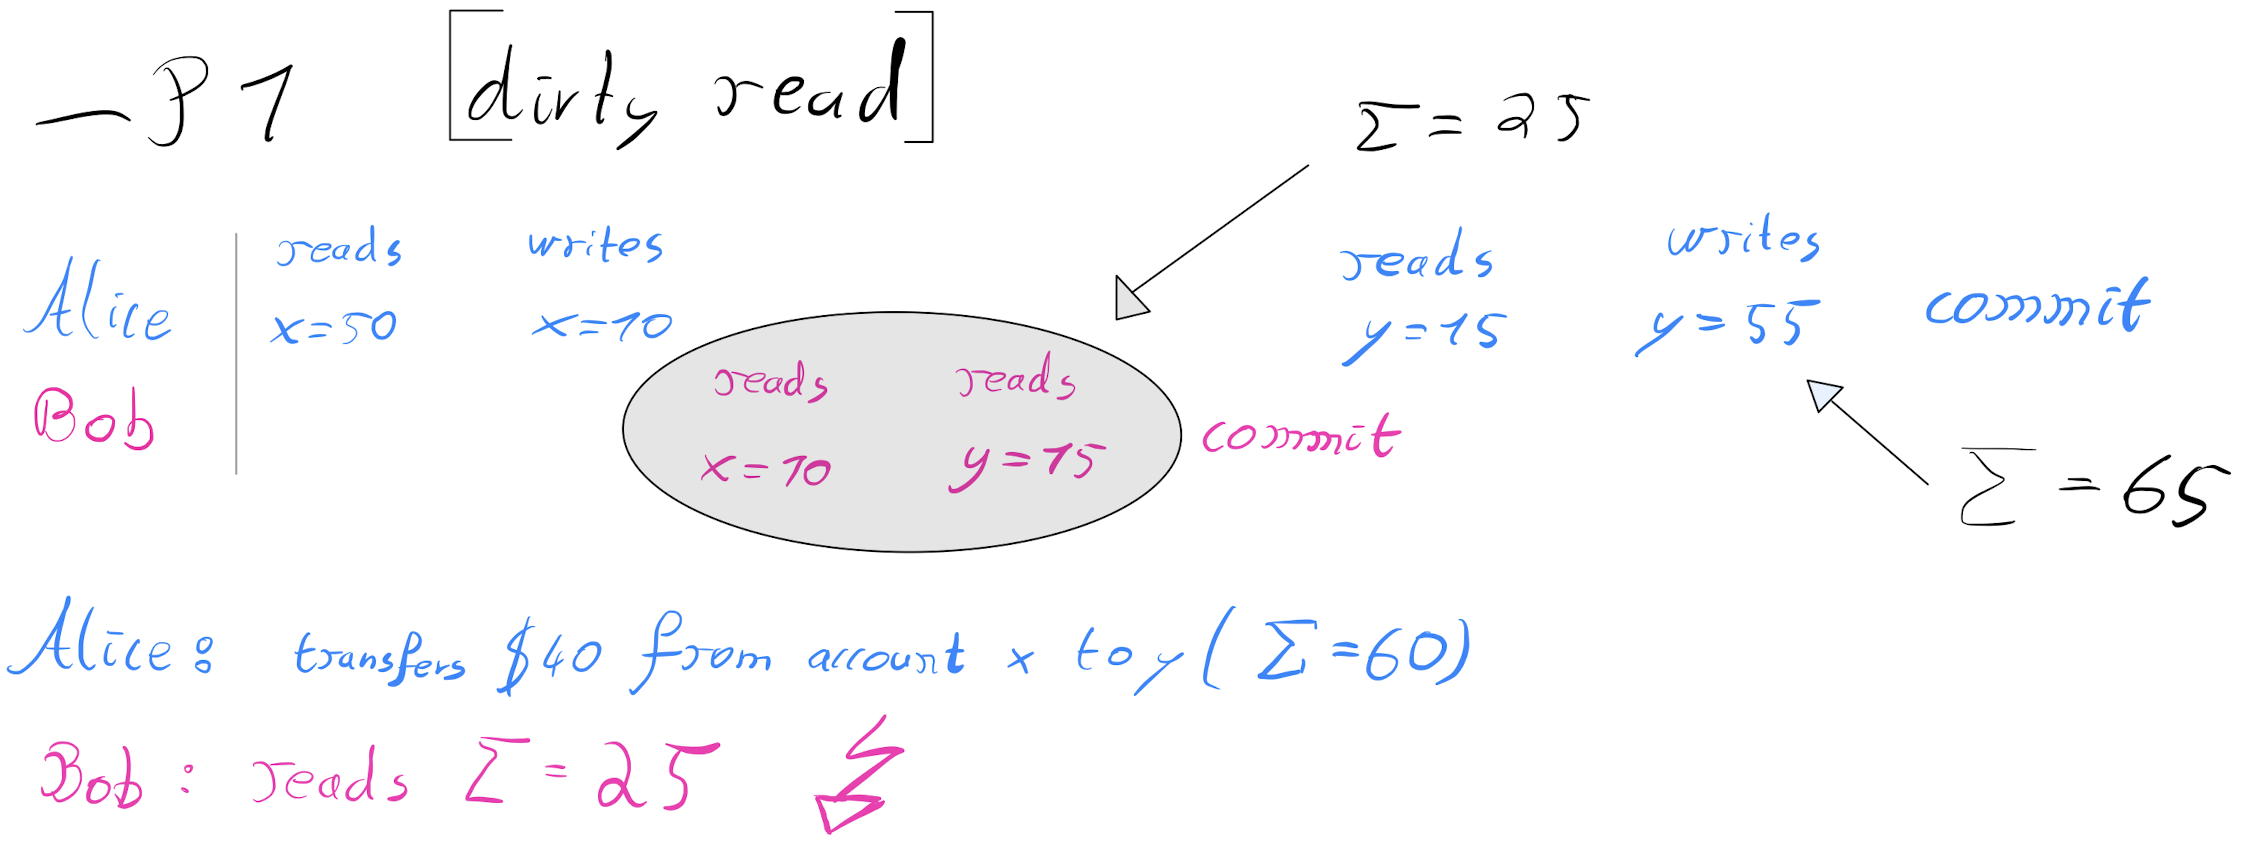 — P1 [dirty read]
Σ = 25
reads writes reads writes
Alice x=50 x=10 y=15 y=55 commit
reads reads
Bob x=10 y=15 commit
Σ = 65
Alice: transfers $40 from account x to y (Σ=60)
Bob: reads Σ = 25